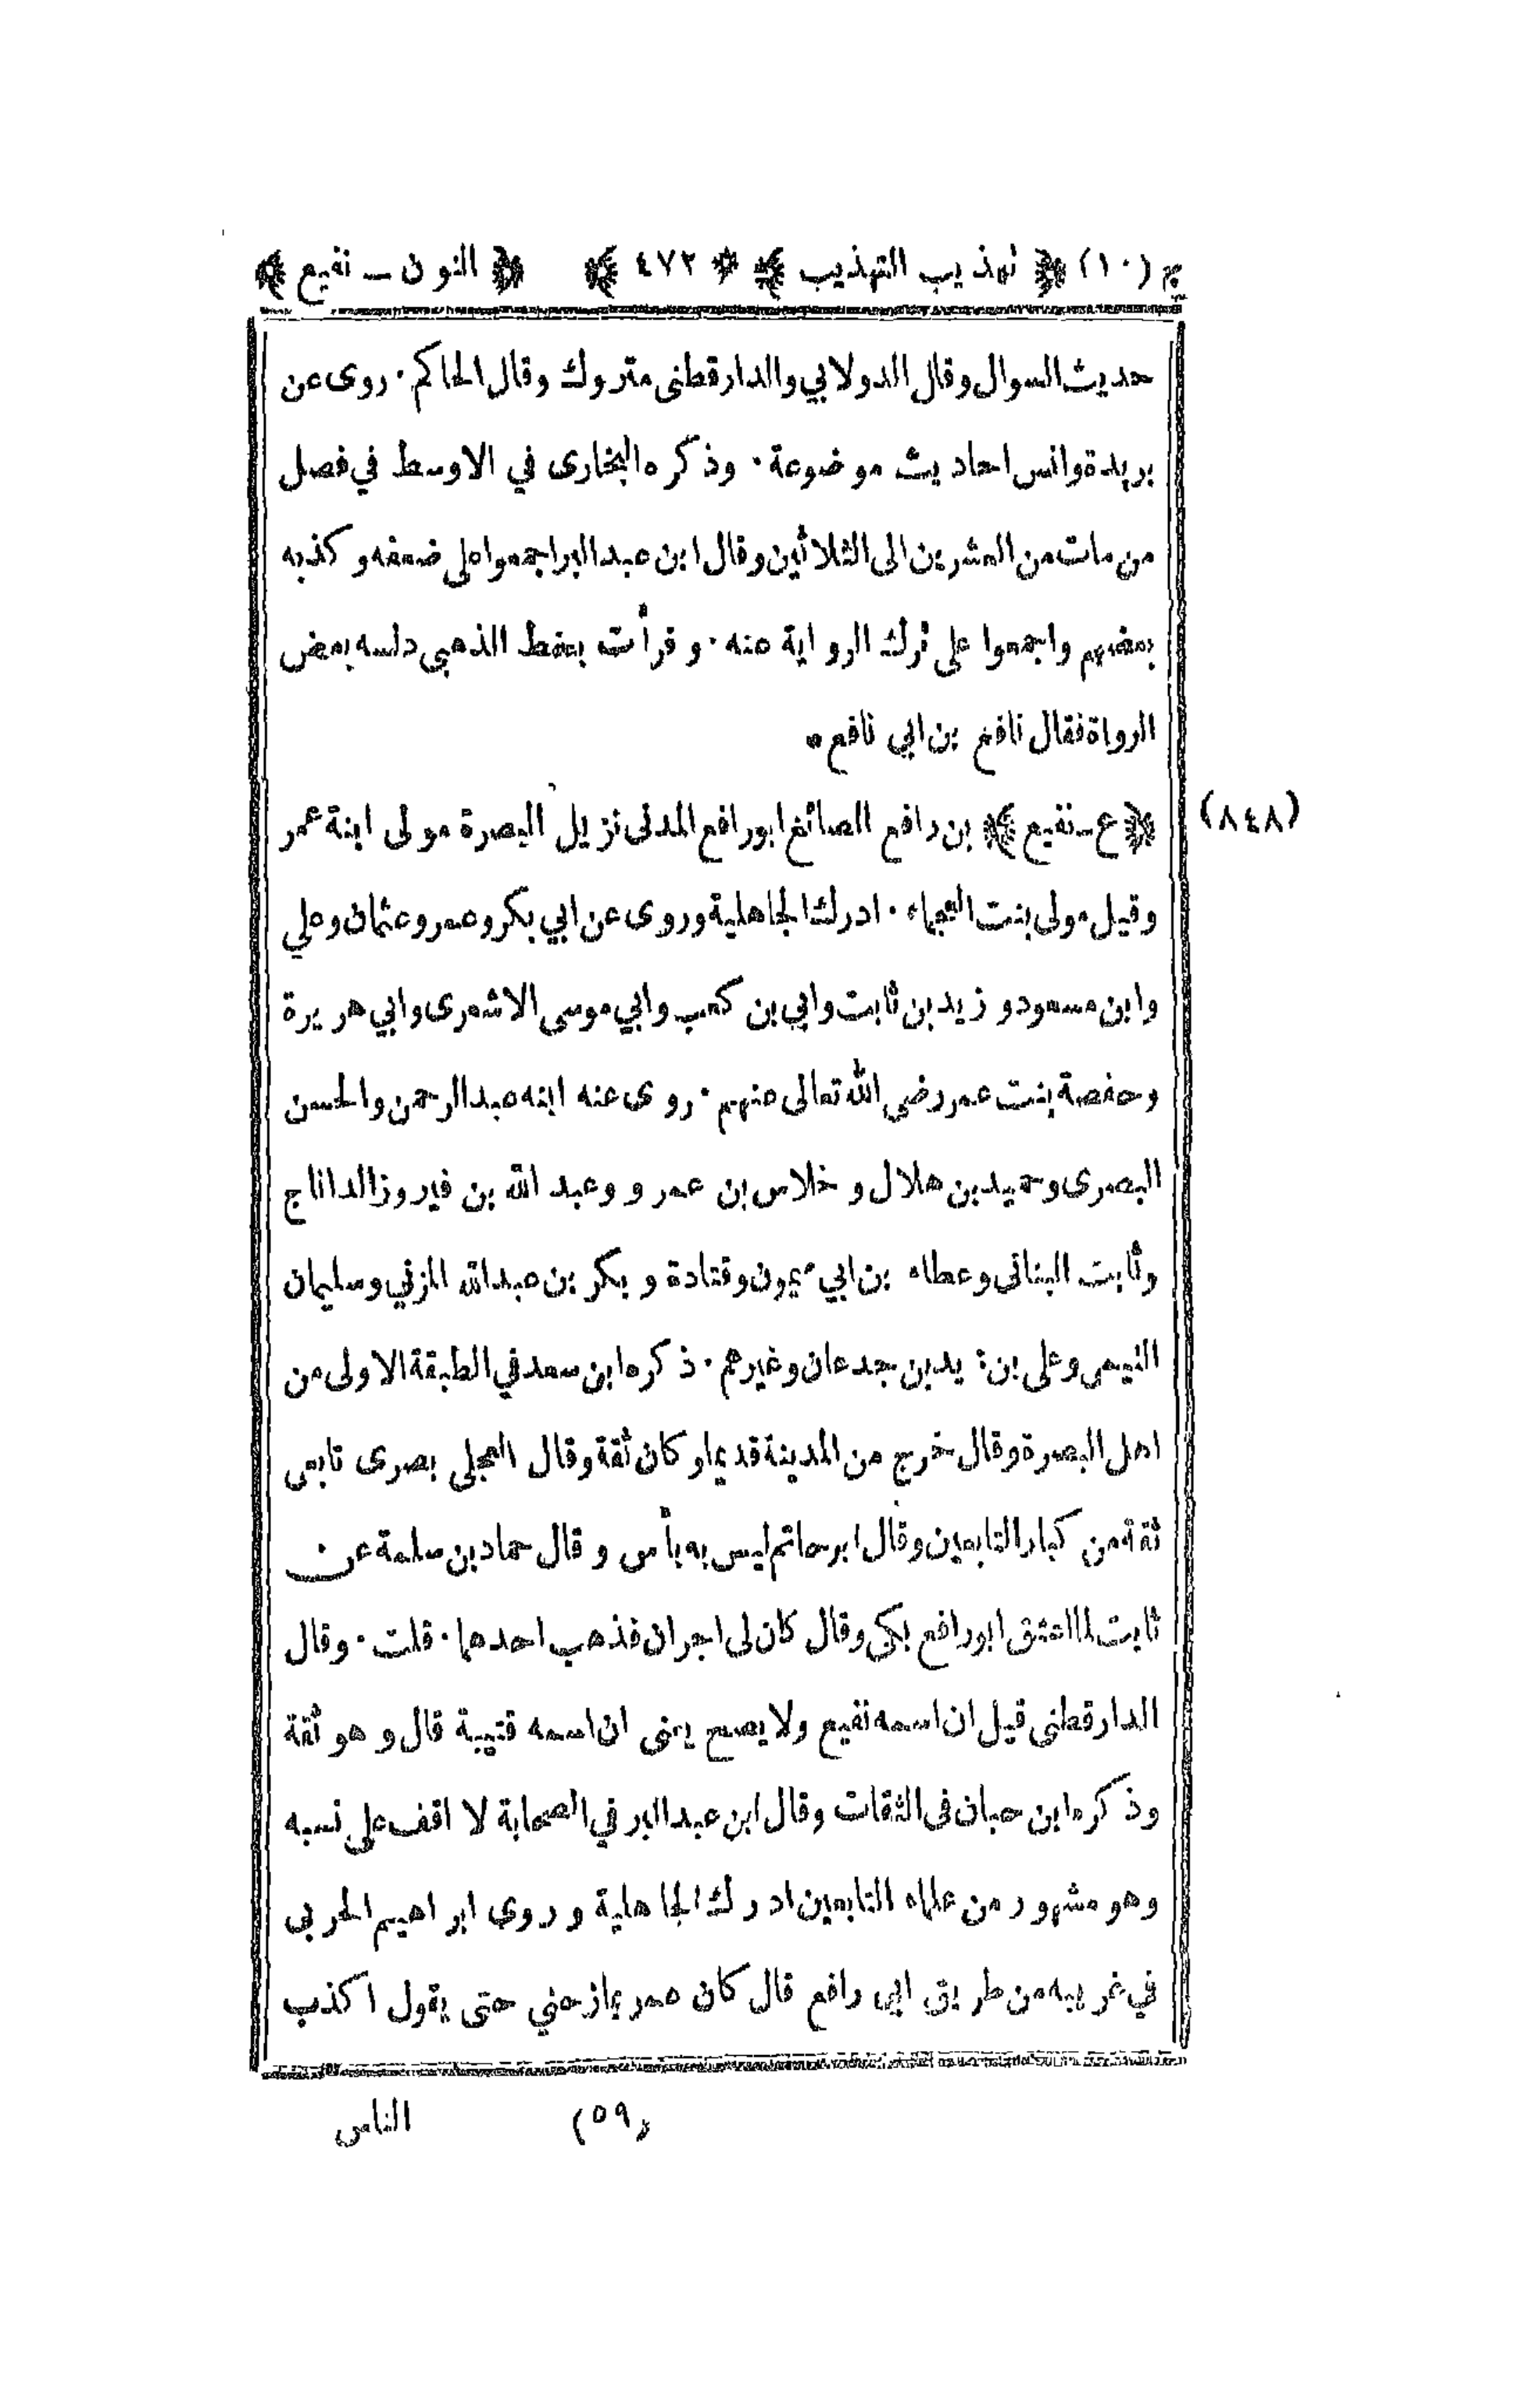 ج (١٠) ﴿ تهذيب التهذيب ﴾ * ٤٧٢ ﴾ ﴿ النون – نفيع ﴾
حديث السوال وقال الدولابي والدارقطنى متروك وقال الحاكم · روى عن
بريدة وانس احاديث موضوعة · وذكره البخارى في الاوسط في فصل
من مات من العشرين الى الثلاثين وقال ابن عبدالبر اجمعوا على ضعفه وكذبه
بعضهم واجمعوا على ترك الرواية عنه · وقرأت بخط الذهبي دلسه بعض
الرواة فقال نافع بن ابي نافع *
(٨٤٨) ﴿ ع – نفيع ﴾ بن رافع الصائغ ابو رافع المدنى نزيل البصرة مولى ابنة عمر
وقيل مولى بنت العجماء · ادرك الجاهلية وروى عن ابي بكر وعمر وعثمان وعلي
وابن مسعود وزيد بن ثابت وابي بن كعب وابي موسى الاشعرى وابي هريرة
وحفصة بنت عمر رضي الله تعالى عنهم · روى عنه ابنه عبد الرحمن والحسن
البصرى وحميد بن هلال وخلاس بن عمرو وعبد الله بن فيروز الداناج
وثابت البنانى وعطاء بن ابي ميمون وقتادة وبكر بن عبد الله المزني وسليمان
التيمى وعلى بن زيد بن جدعان وغيرهم · ذكره ابن سعد في الطبقة الاولى من
اهل البصرة وقال خرج من المدينة قديما وكان ثقة وقال العجلى بصرى تابعى
ثقة من كبار التابعين وقال ابو حاتم ليس به بأس وقال حماد بن سلمة عن
ثابت لما اعتق ابو رافع بكى وقال كان لى اجران فذهب احدهما · قلت · وقال
الدارقطنى قيل ان اسمه نفيع ولا يصح يعنى ان اسمه قتيبة قال وهو ثقة
وذكره ابن حبان فى الثقات وقال ابن عبد البر في الصحابة لا اقف على نسبه
وهو مشهور من علماء التابعين ادرك الجاهلية وروى ابراهيم الحربى
في غريبه من طريق ابى رافع قال كان عمر يمازحني حتى يقول اكذب
(٥٩) الناس